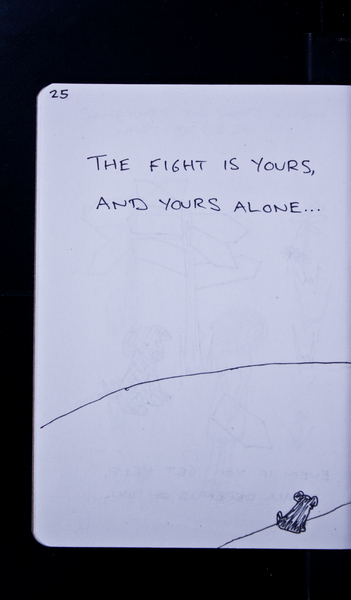 25
THE FIGHT IS YOURS,
AND YOURS ALONE...